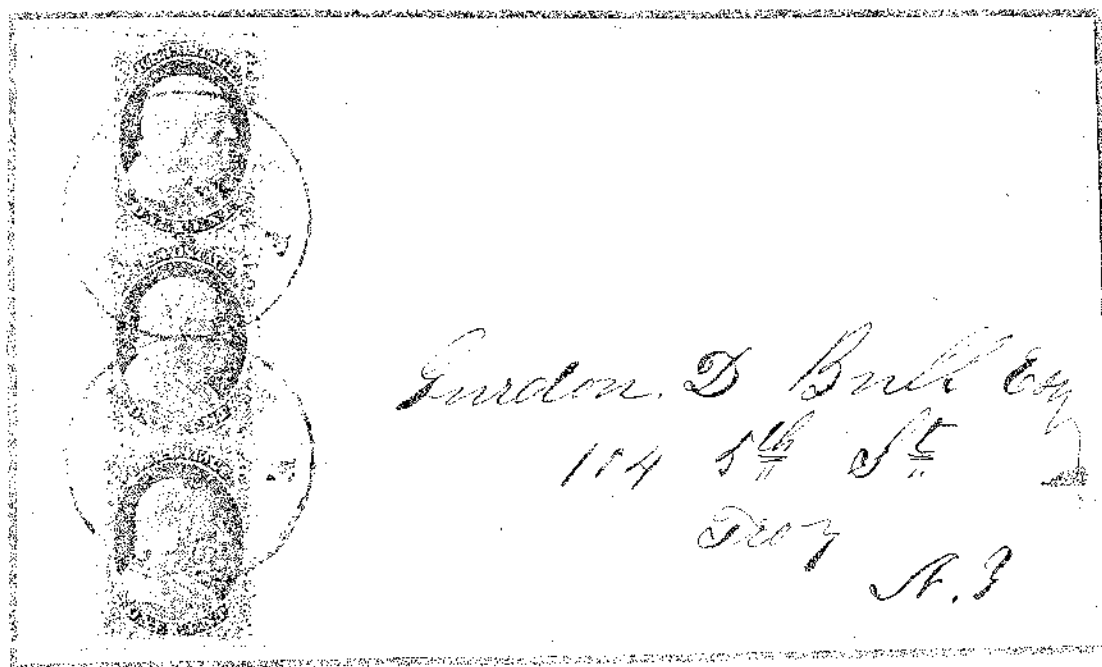 Gurdon. D Bull Esq
114 5th St
Troy
N.Y